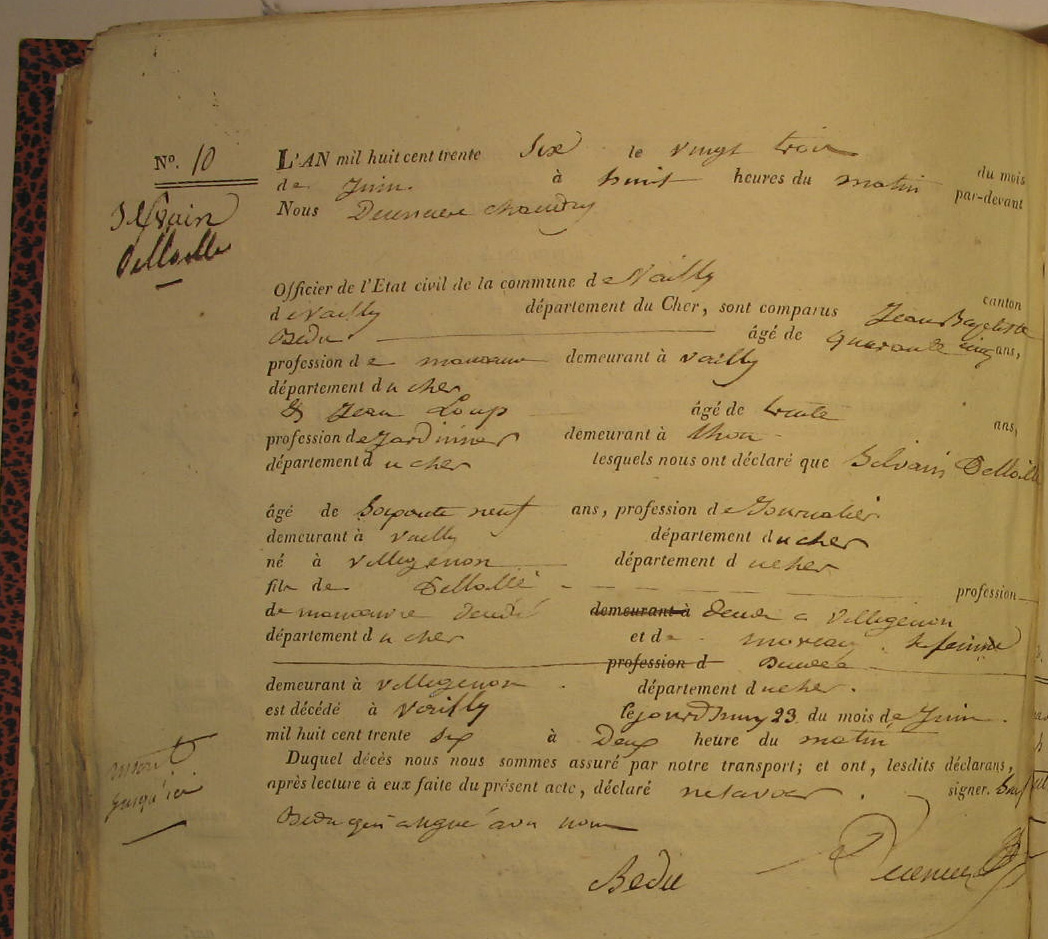 N°. 10
L'AN mil huit cent trente Six le vingt trois du mois
de Juin à huit heures du matin par-devant
Silvain
Nous
Officier de l'Etat civil de la commune de Vailly canton
de Vailly département du Cher, sont comparus Jean Baptiste
Bedu âgé de quarante cinq ans,
profession de manoeuvre demeurant à vailly
département du cher
Et Jean Loup âgé de trente ans,
profession de Jardinnier demeurant à thou
département du cher lesquels nous ont déclaré que Silvain
âgé de Soixante neuf ans, profession de Journalier
demeurant à vailly département du cher
né à villegenon département du cher
fils de profession
de manoeuvre demeurant à a villegenon
département du cher et de moreau. Sa femme
profession d
demeurant à villegenon. département du cher.
est décédé à vailly le jourdhuy 23 du mois de Juin.
mil huit cent trente six à Deux heure du matin
Duquel décès nous nous sommes assuré par notre transport; et ont, lesdits déclarans,
après lecture à eux faite du présent acte, déclaré ne savoir. signer. Sauf
jusqu'ici
Bedu qui a signé avec nous
Bedu